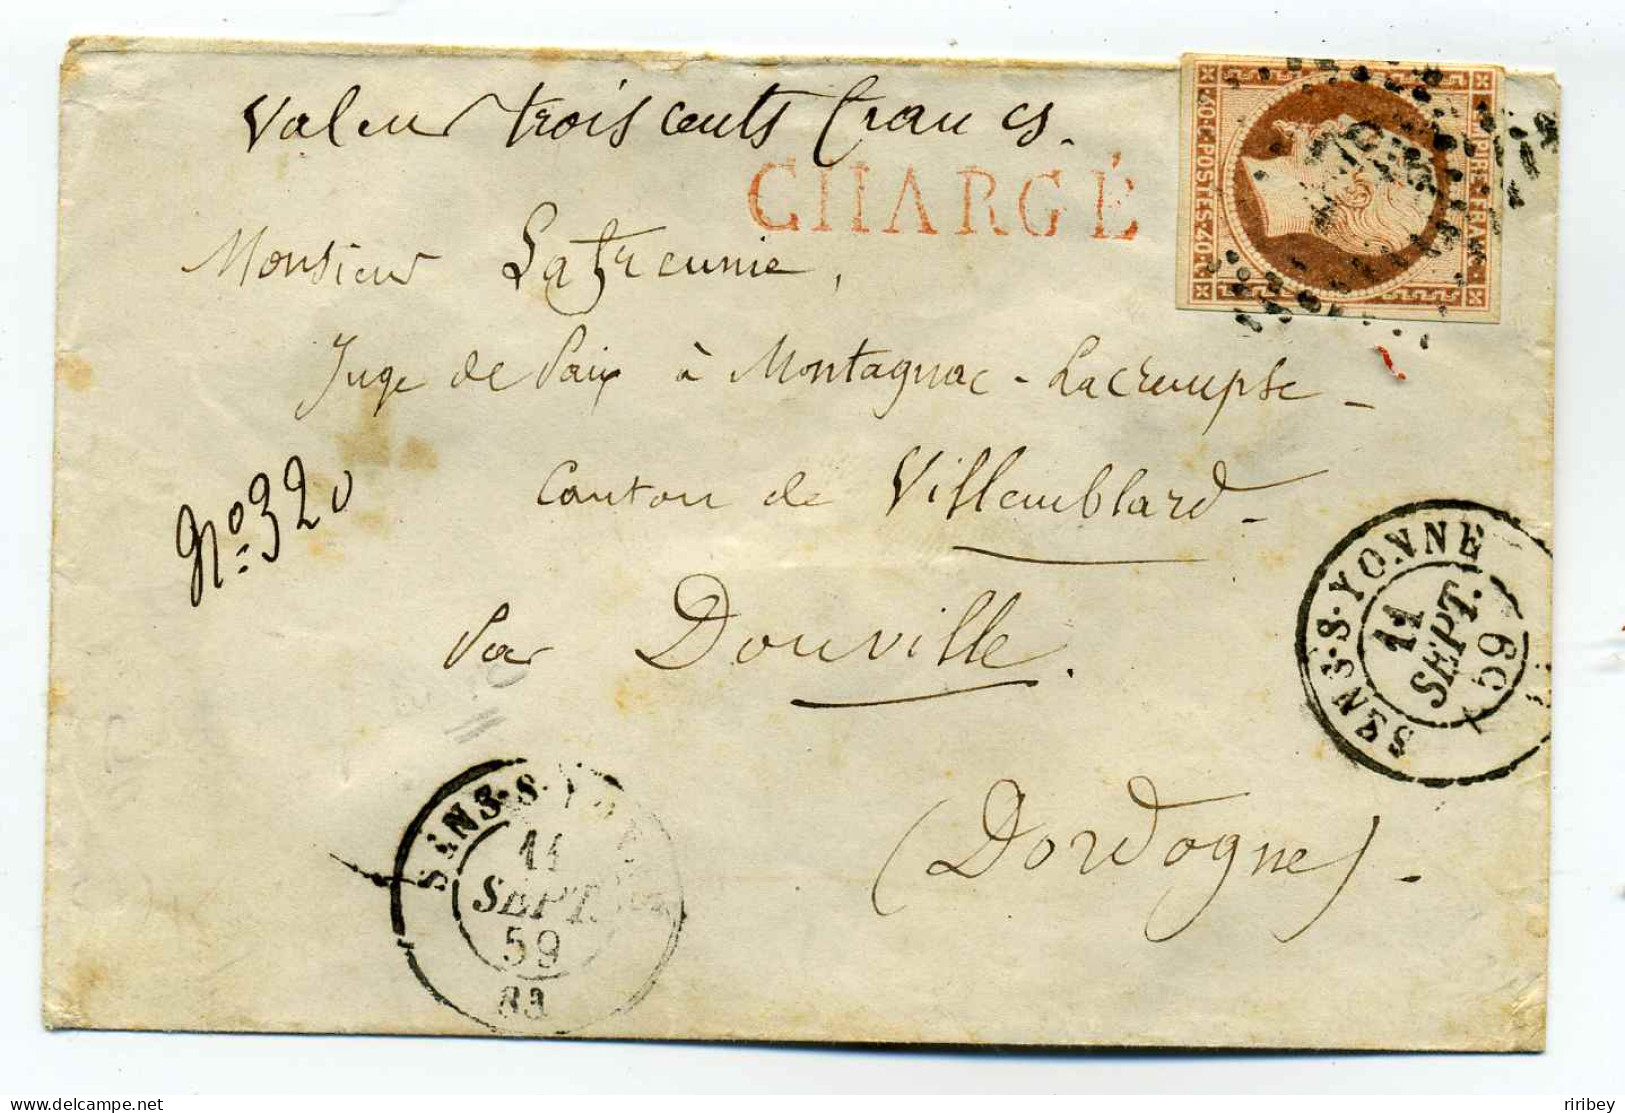 Valeur trois cents francs.
CHARGÉ
EMPIRE · FRANC
40 · C · POSTES · 40 · C
Monsieur Latreunie,
Juge de Paix à Montagnac-Lacrempse -
Canton de Villemblard -
No. 320
Par Douville.
(Dordogne) -
SENS-S-YONNE
11
SEPT.
59
SENS-S-YONNE
11
SEPT.
59
83
riribey